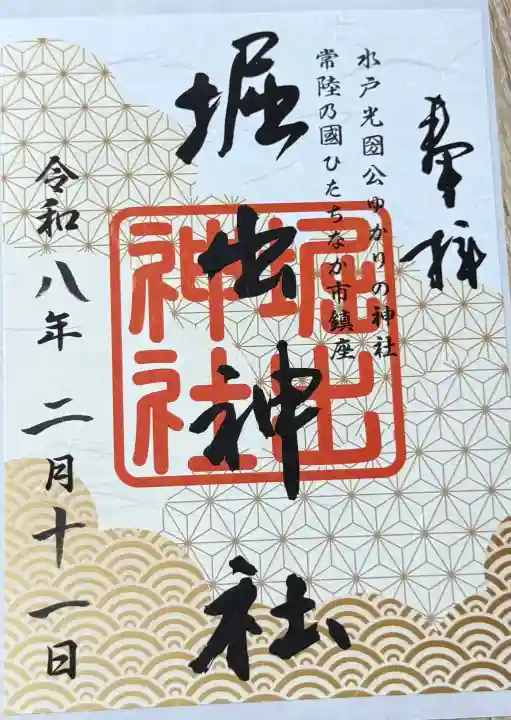 奉拝
水戸光圀公ゆかりの神社
常陸乃國ひたちなか市鎮座
堀出神社
堀出
神社
令和八年二月十一日